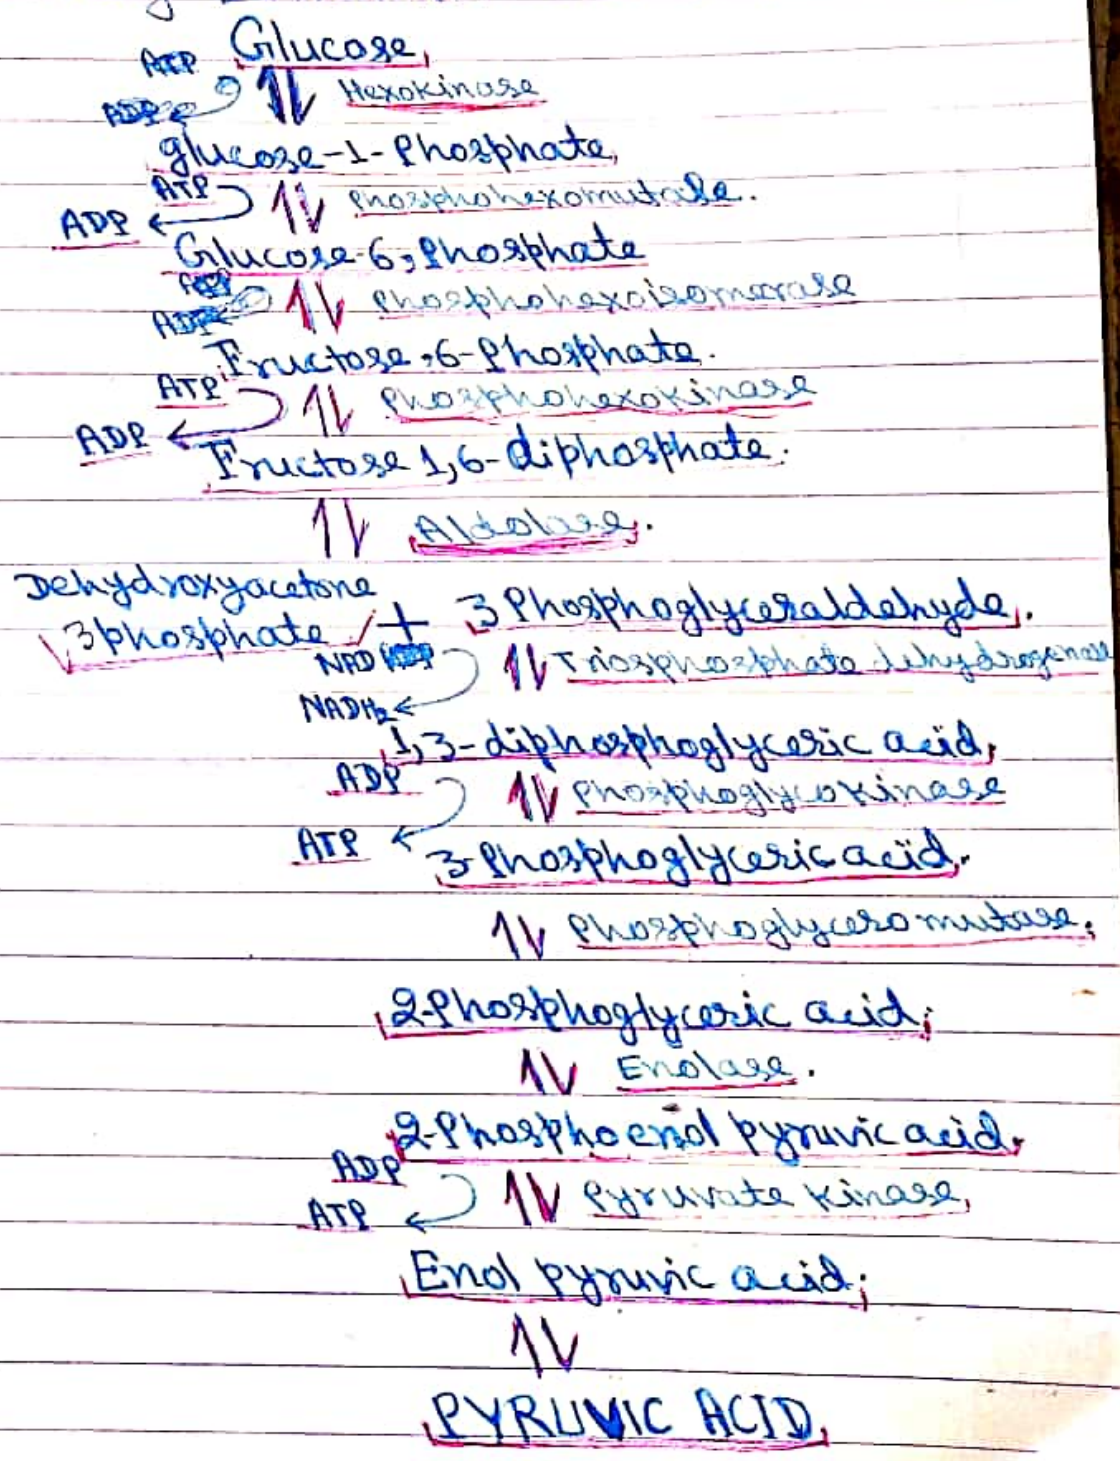 Glucose,
ATP
Hexokinase
glucose-1-Phosphate,
ATP
Phosphohexomutase.
ADP
Glucose-6,Phosphate
Phosphohexoisomerase
Fructose,6-Phosphate.
ATP
Phosphohexokinase
ADP
Fructose 1,6-diphosphate.
Aldolase.
Dehydroxyacetone
3 phosphate + 3 Phosphoglyceraldehyde,
NAD
Triosphosphate dehydrogenase
NADH2
1,3-diphosphoglyceric acid,
ADP
Phosphoglycokinase
ATP
3-Phosphoglyceric acid.
Phosphoglyceromutase,
2-Phosphoglyceric acid,
Enolase.
2-Phosphoenol pyruvic acid,
ADP
Pyruvate Kinase,
ATP
Enol pyruvic acid,
PYRUVIC ACID,